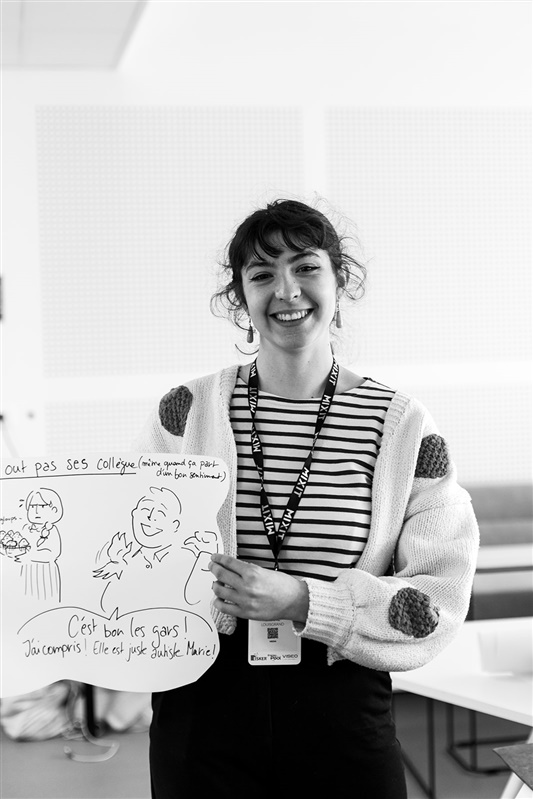 out pas ses collègue (même quand ça part
d'un bon sentiment)
C'est bon les gars !
J'ai compris ! Elle est juste autiste Marie !
MIXIT
MIXIT
MIXIT
MIXIT
ESKER